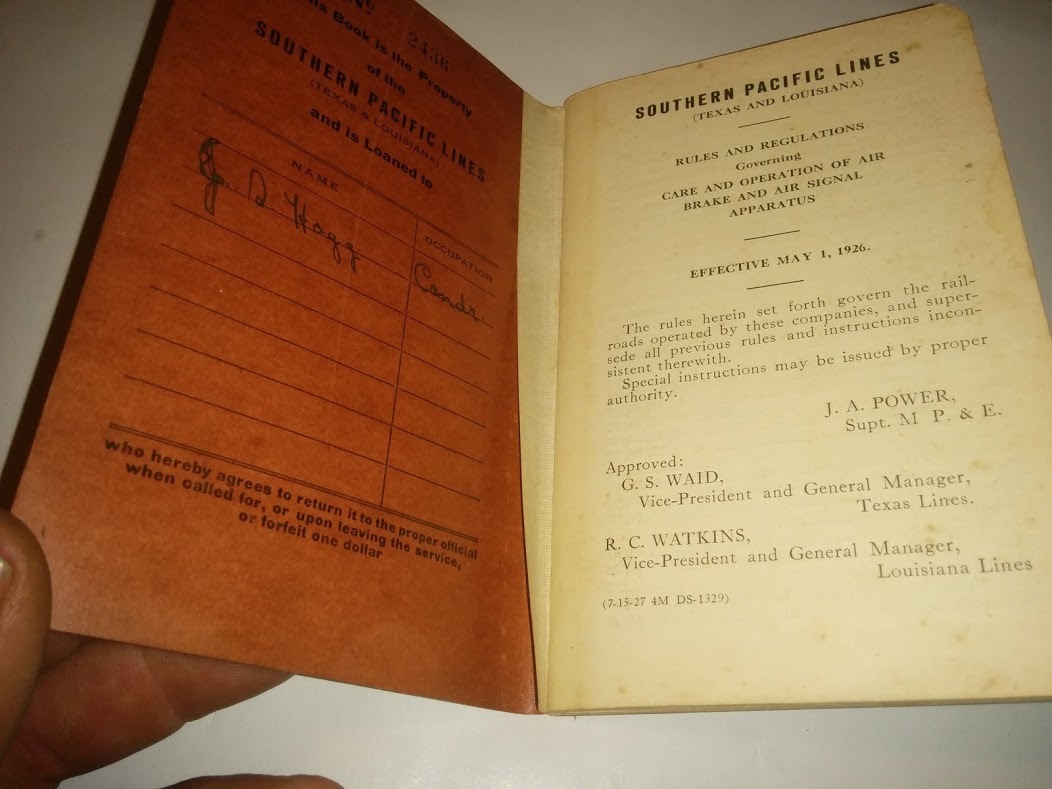 No 2436
his Book is the Property
of the
SOUTHERN PACIFIC LINES
(TEXAS & LOUISIANA)
and is Loaned to
NAME
OCCUPATION
J. D Hogg
Condr.
who hereby agrees to return it to the proper official
when called for, or upon leaving the service,
or forfeit one dollar
SOUTHERN PACIFIC LINES
(TEXAS AND LOUISIANA)
RULES AND REGULATIONS
Governing
CARE AND OPERATION OF AIR
BRAKE AND AIR SIGNAL
APPARATUS
EFFECTIVE MAY 1, 1926.
The rules herein set forth govern the rail-
roads operated by these companies, and super-
sede all previous rules and instructions incon-
sistent therewith.
Special instructions may be issued by proper
authority.
J. A. POWER,
Supt. M P. & E.
Approved:
G. S. WAID,
Vice-President and General Manager,
Texas Lines.
R. C. WATKINS,
Vice-President and General Manager,
Louisiana Lines
(7-15-27 4M DS-1329)